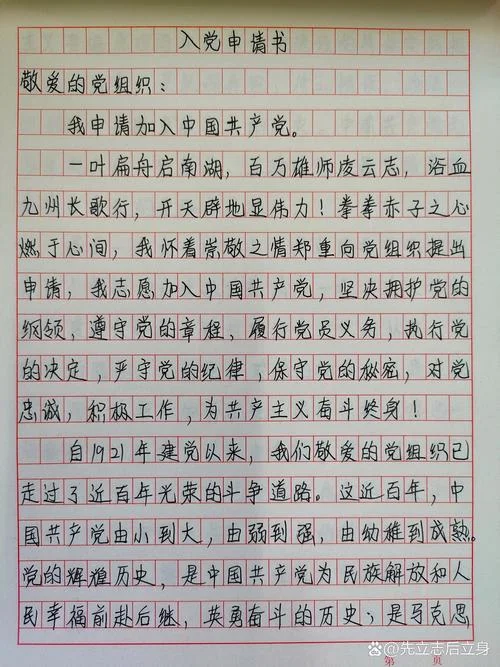 入党申请书
敬爱的党组织：
我申请加入中国共产党。
一叶扁舟启南湖，百万雄师凌云志，浴血
九州长歌行，开天辟地显伟力！拳拳赤子之心
燃于心间，我怀着崇敬之情郑重向党组织提出
申请，我志愿加入中国共产党，坚决拥护党的
纲领，遵守党的章程，履行党员义务，执行党
的决定，严守党的纪律，保守党的秘密，对党
忠诚，积极工作，为共产主义奋斗终身！
自1921年建党以来，我们敬爱的党组织已
走过了近百年光荣的斗争道路。这近百年，中
国共产党由小到大，由弱到强，由幼稚到成熟。
党的辉煌历史，是中国共产党为民族解放和人
民幸福前赴后继，英勇奋斗的历史；是马克思
第 页
@先立志后立身